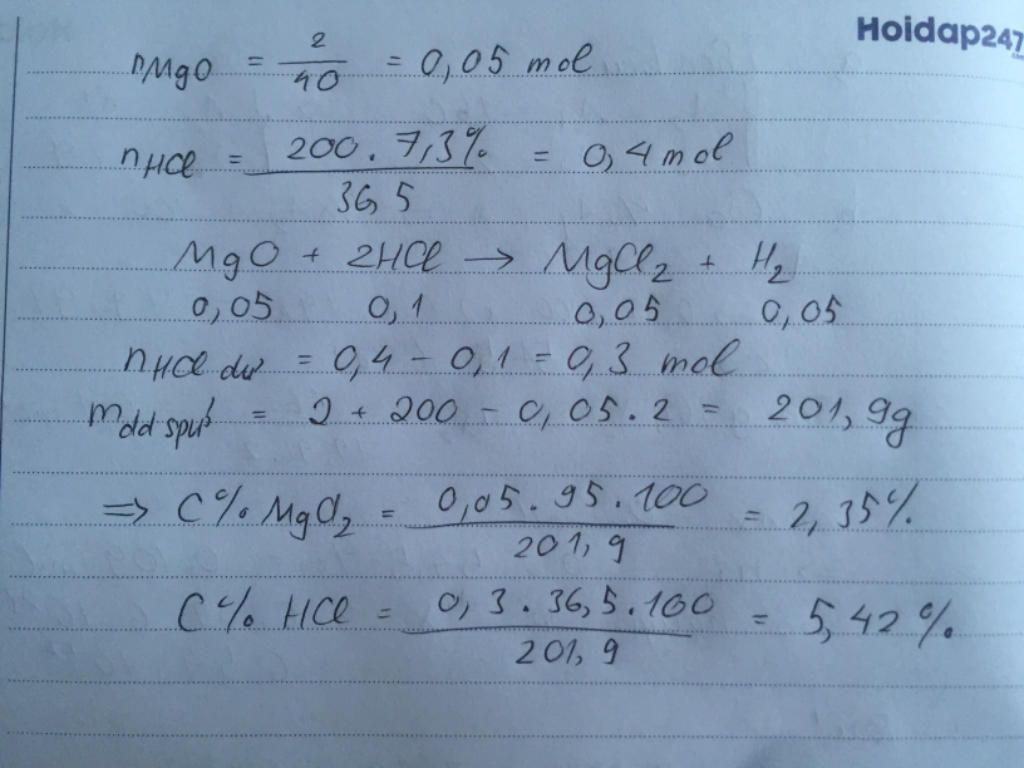 Hoidap247
nMgO = 2/40 = 0,05 mol
nHCl = 200 . 7,3% / 36,5 = 0,4 mol
MgO + 2HCl → MgCl2 + H2
0,05 0,1 0,05 0,05
nHCl dư = 0,4 - 0,1 = 0,3 mol
mdd spứ = 2 + 200 - 0,05 . 2 = 201,9g
⇒ C% MgCl2 = 0,05 . 95 . 100 / 201,9 = 2,35%
C% HCl = 0,3 . 36,5 . 100 / 201,9 = 5,42%